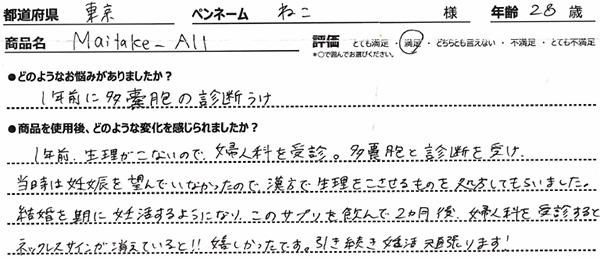 都道府県 東京 ペンネーム ねこ 様 年齢 28 歳
商品名 Maitake-All 評価 とても満足・満足・どちらとも言えない・不満足・とても不満足
*○で囲んでお選びください。
●どのようなお悩みがありましたか？
1年前に多嚢胞の診断うけ
●商品を使用後、どのような変化を感じられましたか？
1年前、生理がこないので、婦人科を受診。多嚢胞と診断を受け、
当時は妊娠を望んでいなかったので、漢方で生理をこさせるものを処方してもらいました。
結婚を期に妊活するようになり、このサプリを飲んで2カ月後、婦人科を受診すると
ネックレスサインが消えていると!!嬉しかったです。引き続き妊活頑張ります!